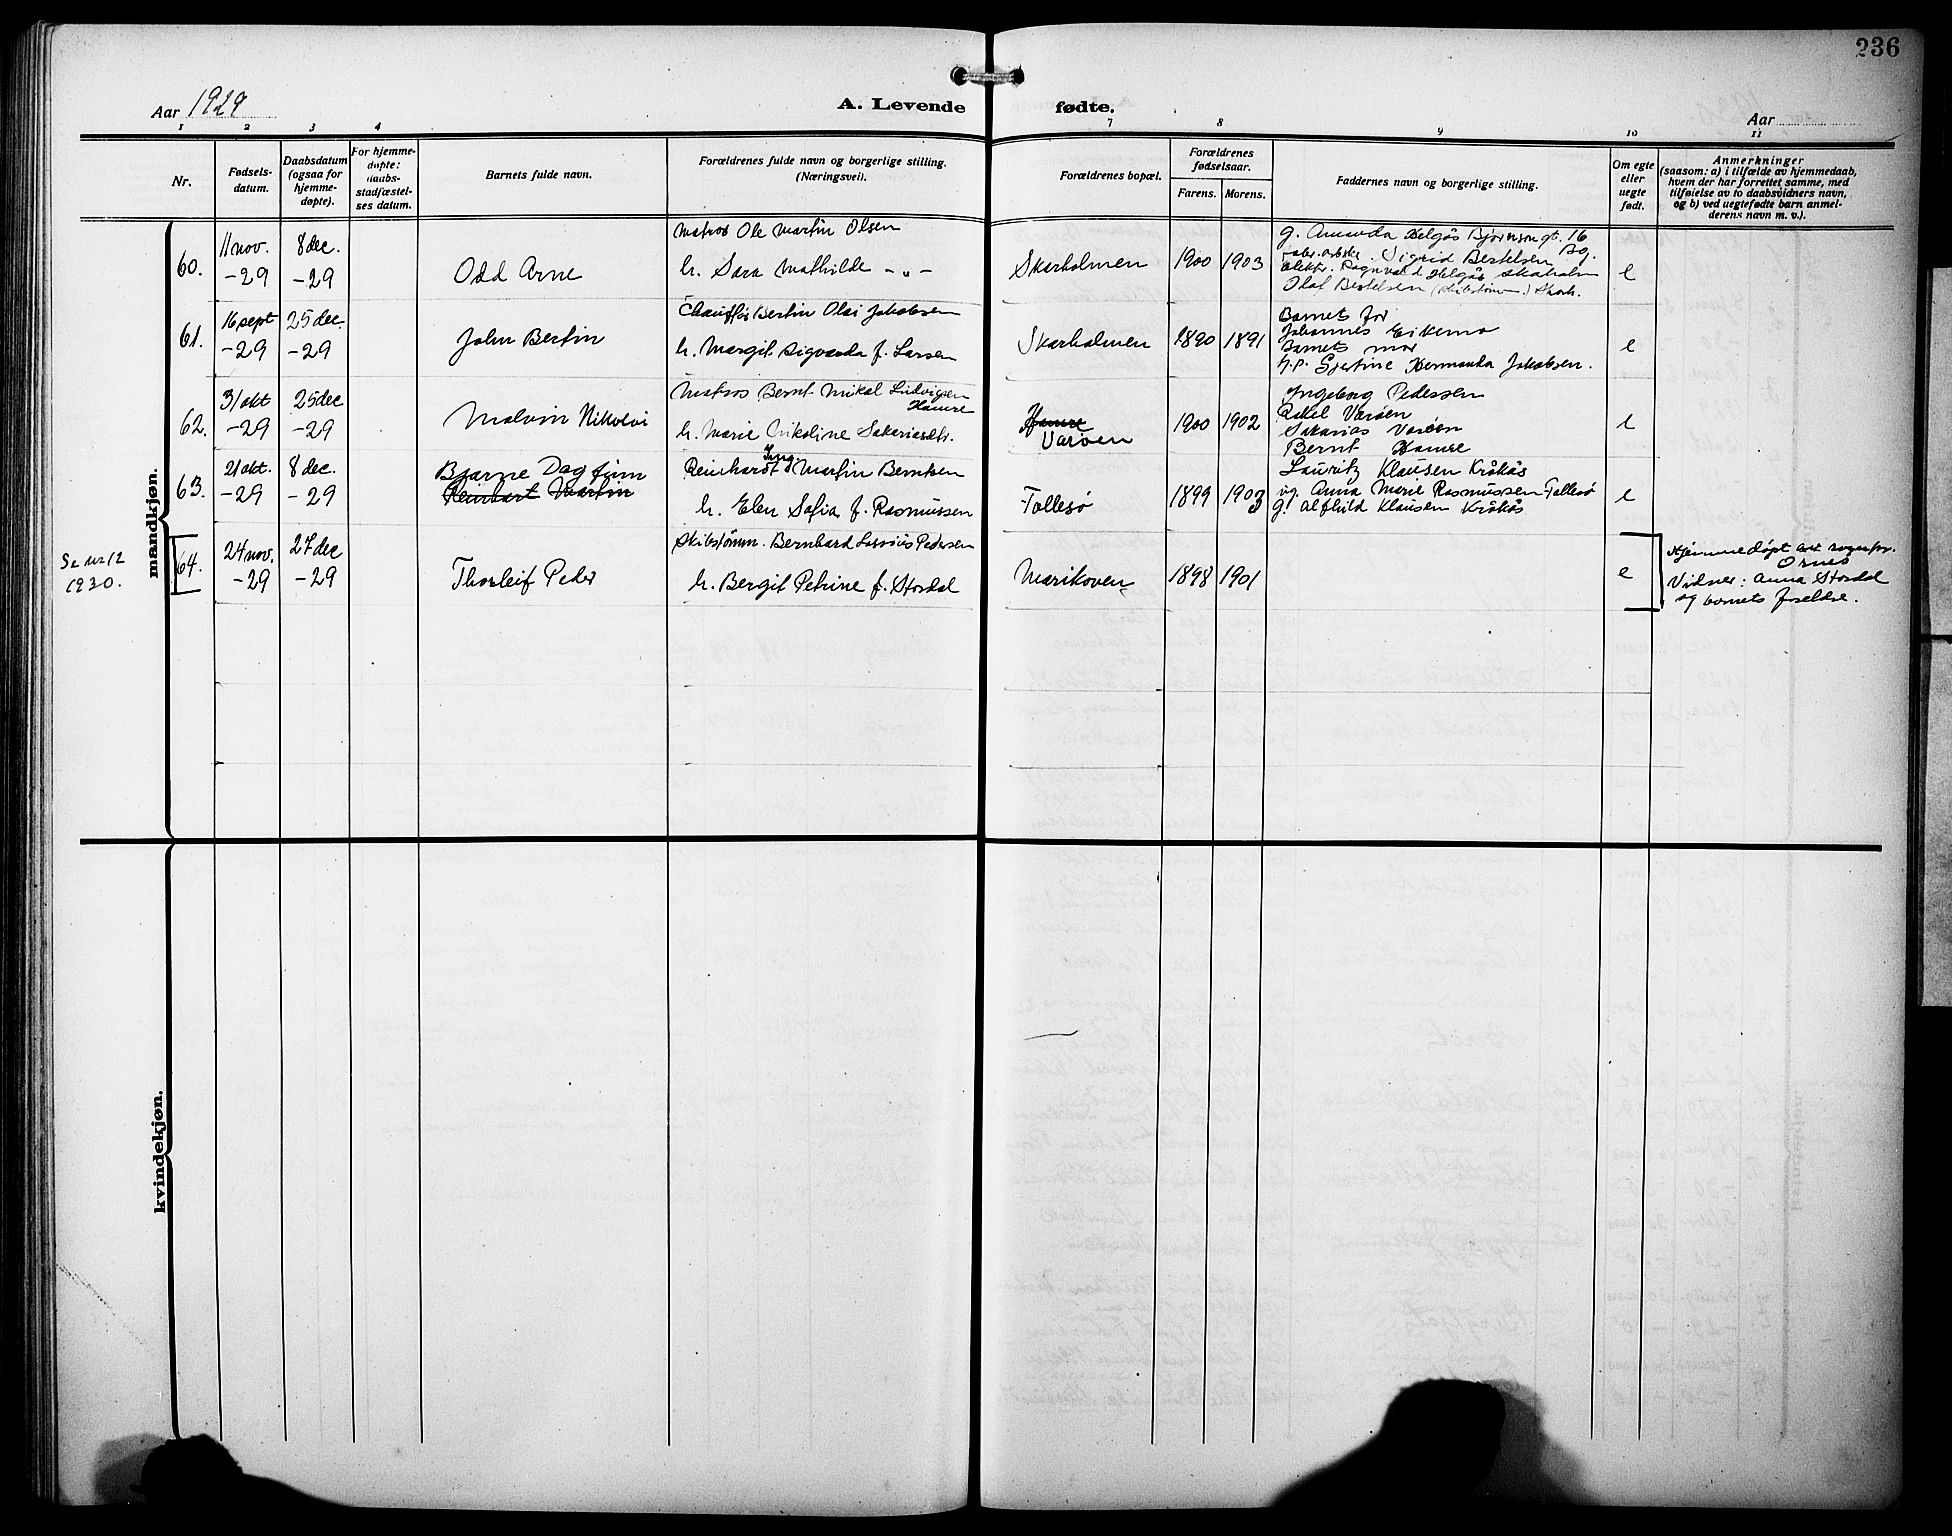 236
Aar 1929
A. Levende fødte.
Aar
1 2 3 4 7 8 9 10 11
Nr.
Fødsels-
datum.
Daabsdatum
(ogsaa for
hjemme-
døpte).
For hjemme-
døpte:
daabs-
stadfæstel-
ses datum.
Barnets fulde navn.
Forældrenes fulde navn og borgerlige stilling.
(Næringsvei).
Forældrenes bopæl.
Forældrenes
fødselsaar.
Farens. Morens.
Faddernes navn og borgerlige stilling.
Om egte
eller
uegte
født.
Anmerkninger
(saasom: a) i tilfælde av hjemmedaab,
hvem der har forrettet samme, med
tilføielse av to daabsvidners navn,
og b) ved uegtefødte barn anmel-
derens navn m. v.).
mandkjøn.
60.
11 nov.
-29
8 dec.
-29
Odd Arne
Matros Ole Martin Olsen
h. Sara Mathilde - " -
Skarholmen
1900 1903
g. Amanda Helgås Bjørnsonsgt. 16
Sigrid Bertelsen Bg.
elektr. Ragnvald Helgås Skarholm
Olaf Bertelsen (skibstømm.) Skarh.
e
61.
16 sept
-29
25 dec.
-29
John Bertin
Chauffør Bertin Olai Jakobsen
h. Margit Sigvarda f. Larsen
Skarholmen
1890 1891
Barnets far
Johannes Eikemo
Barnets mor
Gjertine Hermanda Jakobsen.
e
62.
31 okt
-29
25 dec
-29
Malvin Nikolai
Matros Bernt Mikal Ludvigsen
Hamre
h. Marie Nikoline Sakariasdtr.
Hamre
Varøen
1900 1902
Ingeborg Pedersen
Rakel Varøen
Sakarias Varøen
Bernt Hamre
e
63.
21 okt.
-29
8 dec.
-29
Bjarne Dagfinn
Reinhart Martin
Ing.
Reinhardt Martin Berntsen
h. Elen Sofia f. Rasmussen
Tollesø
1899 1903
Lauritz Klausen Kråkås
ug. Anna Marie Rasmussen Tollesø
g. Alfhild Klausen Kråkås
e
Se nr 12
1930.
64.
24 nov.
-29
27 dec
-29
Thorleif Peder
Skibstømm. Bernhard Larsius Pedersen
h. Bergit Petrine f. Stordal
Marikoven
1898 1901
e
Hjemmedøpt av sognepr.
Ornes
Vidner: Anna Stordal
og barnets foreldre.
kvindekjøn.